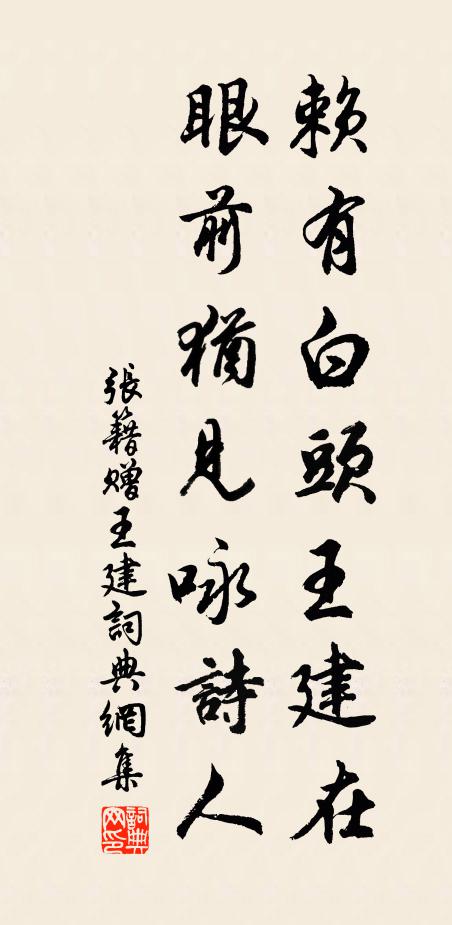 賴有白頭王建在
眼前猶見咏詩人
張籍贈王建詞典網集
詞典網印